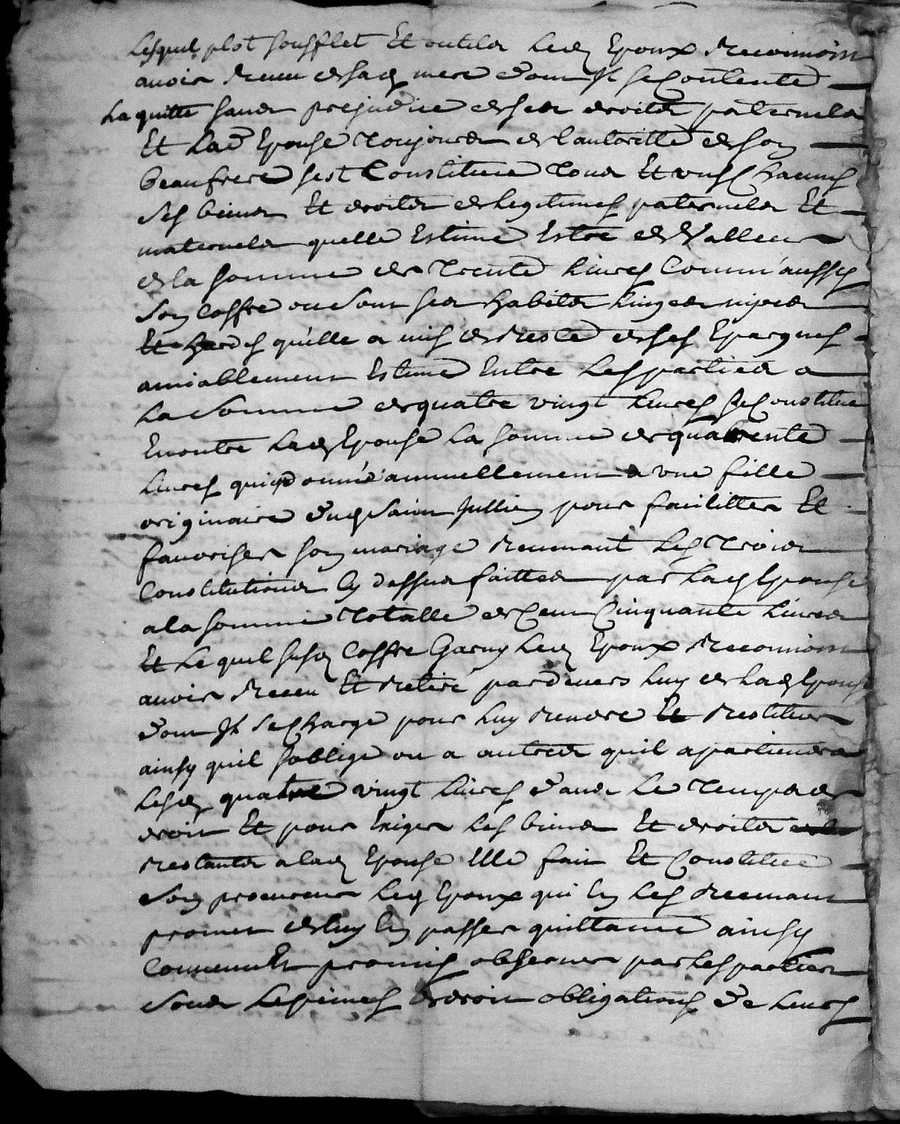 Lesquel plot soufflet Et outilz Led Epoux Reconnoin
avoir Receu de sad mere dont Il se Contente
La quitte sans prejudice de ses droits paternels
Et Lad Epouse Toujours de l'autoritte de son
beaufrere sest Constituee Tous Et uns Chacuns
ses biens Et droits de legitimes paternels Et
maternels quelle Estime Estre de valleur
de la somme de Trente Livres Comm'aussy
son Coffre ou sont ses habits linges
Et hardes qu'ille a mis de Reste de ses Epargnes
amiablement Estimé Entre Les parties a
La somme de quatre vingt Livres se Constitue
Enoutre Lad Epouse La somme de quarente
Livres quon donne annuellement a une fille
originaire dud Saint Jullien pour faciliter Et
favoriser son mariage Revenant Les Trois
Constitutions cy dessus faittes par Lad Epouse
a la somme Totalle de Cent Cinquante Livres
Et Lequel susd Coffre Garny Led Epoux Reconnoin
avoir Receu Et Retiré pardevers Luy de Lad Epouse
dont Il se Charge pour Luy Rendre Et Restituer
ainsy quil soblige ou a autres quil apartiendra
Lesd quatre vingt Livres dans Le Temps de
droit Et pour Exiger Les biens Et droits
Restants a lad Epouse Elle fait Et Constitue
son procureur Led Epoux qui En Les Recevant
promet de luy En passer quittance ainsy
Convenu Et promis observer par Les parties
sous Les peines de droit obligations de Leurs